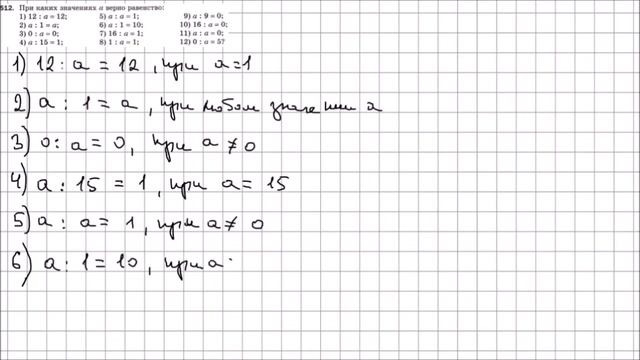 512. При каких значениях a верно равенство:
1) 12 : a = 12; 5) a : a = 1; 9) a : 9 = 0;
2) a : 1 = a; 6) a : 1 = 10; 10) 16 : a = 0;
3) 0 : a = 0; 7) 16 : a = 1; 11) a : a = 0;
4) a : 15 = 1; 8) 1 : a = 1; 12) 0 : a = 5?
1) 12 : a = 12, при a=1
2) a : 1 = a, при любом значении a
3) 0 : a = 0, при a ≠ 0
4) a : 15 = 1, при a = 15
5) a : a = 1, при a ≠ 0
6) a : 1 = 10, при a